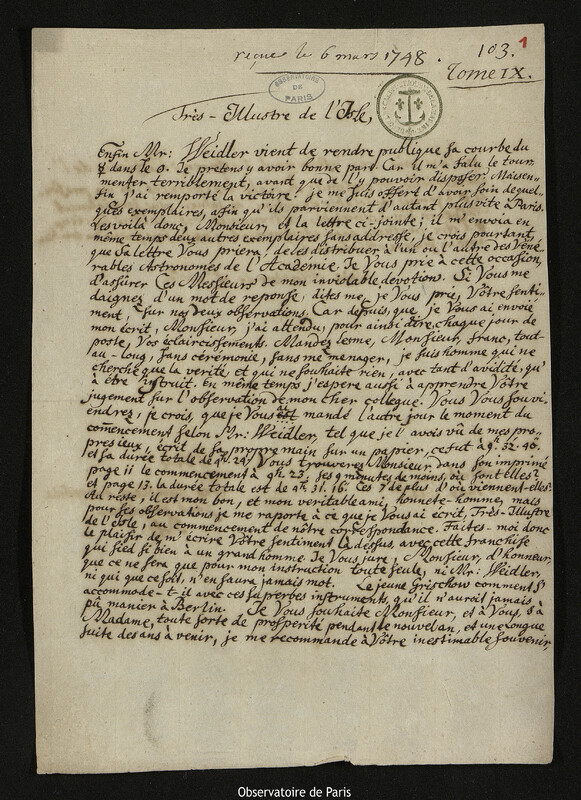 reçue le 6 mars 1748.
103.
1
Tome IX.
OBSERVATOIRE DE PARIS
Très-Illustre de l'Isle,
Enfin Mr: Weidler vient de rendre publique sa courbe du
☿ dans le ☉. Je pretens y avoir bonne part. Car il m'a falu le tour-
menter terriblement, avant que de l'y pouvoir disposer. Mais en-
fin j'ai remporté la victoire. je me suis offert d'avoir soin de quel-
ques exemplaires, afin qu'ils parviennent d'autant plus vite à Paris.
Les voilà donc, Monsieur, et la lettre ci-jointe; il m'envoia en
même temps deux autres exemplaires sans addresse, je crois pourtant,
que Sa lettre Vous priera, de les distribuer à l'un ou l'autre des Véné-
rables Astronomes de l'Academie. Je Vous prie à cette occasion,
d'assurer Ces Messieurs de mon inviolable devotion. Si Vous me
daignez d'un mot de reponse, dites me, je Vous prie, Vôtre senti-
ment, sur nos deux observations. Car depuis, que je Vous ai envoié
mon écrit, Monsieur, j'ai attendu, pour ainsi dire, chaque jour de
poste, Vos éclaircissements. Mandez le me, Monsieur, franc, tout-
au-long, sans cérémonie, sans me menager, je suis homme qui ne
cherche que la verité, et qui ne souhaite rien, avec tant d'avidité, qu'
à être instruit. En même temps j'espere aussi à apprendre Vôtre
jugement sur l'observation de mon cher collegue. Vous Vous souvi-
endrez, je crois, que je Vous ai mandé l'autre jour le moment du
commencement selon Mr: Weidler, tel que je l'avois vû de mes pro-
pres ieux, écrit de sa propre main sur un papier, ce fut à 9h. 32. 40.
et sa durée totale de 4h. 24. Vous trouverez Monsieur, dans son imprimé
page 11 le commencement à 9h. 23, ses 9 minutes de moins, où sont elles?
et page 13. la durée totale est de 4h. 31. 16. Ces 7 de plus d'où viennent-elles?
Au reste, il est mon bon, et mon veritable ami, honnete-homme, mais
pour ses observations je me raporte à ce que je Vous ai écrit, Très-Illustre
de l'Isle, au commencement de nôtre correspondance. Faites-moi donc
le plaisir de m'écrire Vôtre sentiment là dessus, avec cette franchise
qui sied si bien à un grand homme. Je Vous jure, Monsieur, d'honneur,
que ce ne sera que pour mon instruction toute seule, ni Mr: Weidler,
ni qui que ce soit, n'en saura jamais mot. Le jeune Grischow comment s'
accommode-t-il avec ces superbes instruments, qu'il n'auroit jamais
pû manier à Berlin. Je Vous souhaite Monsieur, et à Vous, et à
Madame, toute sorte de prosperité pendant le nouvel an, et une longue
suite des ans à venir, je me recommande à Vôtre inestimable souvenir,
Observatoire de Paris